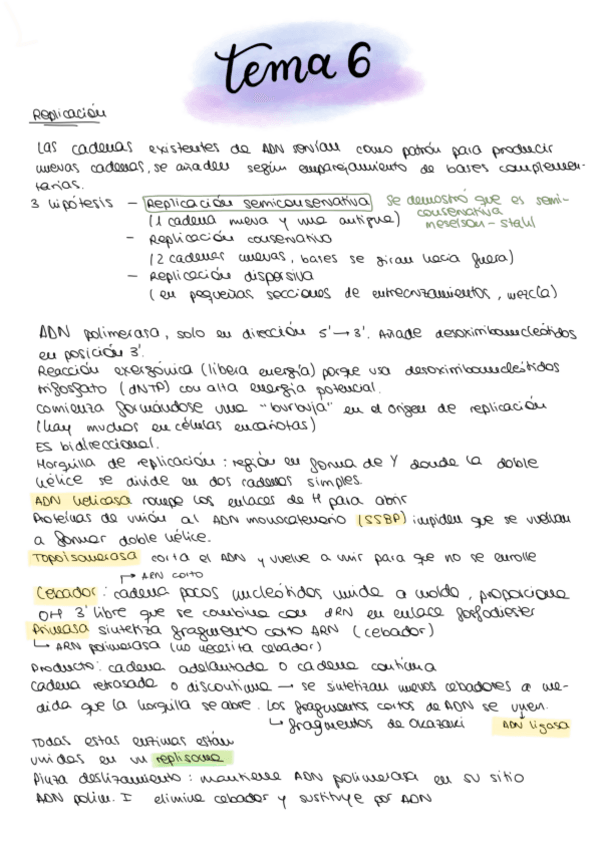 tema 6
Replicación
Las cadenas existentes de ADN servían como patrón para producir
nuevas cadenas, se añaden según emparejamiento de bases complemen-
tarias.
3 hipótesis - Replicación semiconservativa se demostró que es semi-
conservativa
(1 cadena nueva y una antigua) meselson-stahl
- Replicación conservativa
(2 cadenas nuevas, bases se giran hacia fuera)
- Replicación dispersiva
(en pequeñas secciones de entrecruzamientos, mezcla)
ADN polimerasa, solo en dirección 5' → 3'. Añade desoxirribonucleótidos
en posición 3'.
Reacción exergónica (libera energía) porque usa desoxirribonucleótidos
trifosfato (dNTP) con alta energía potencial.
Comienza formándose una "burbuja" en el origen de replicación
(hay muchos en células eucariotas)
Es bidireccional.
Horquilla de replicación: región en forma de Y donde la doble
hélice se divide en dos cadenas simples.
ADN helicasa rompe los enlaces de H para abrir
Proteínas de unión al ADN monocatenario (SSBP) impiden que se vuelvan
a formar doble hélice.
Topoisomerasa corta el ADN y vuelve a unir para que no se enrolle
→ ARN corto
Cebador: cadena pocos nucleótidos unida a molde, proporciona
OH 3' libre que se combina con dRN en enlace fosfodiester
Primasa sintetiza fragmento corto ARN (cebador)
↳ ARN polimerasa (no necesita cebador)
Producto: cadena adelantada o cadena continua
Cadena retrasada o discontinua → se sintetizan nuevos cebadores a me-
dida que la horquilla se abre. Los fragmentos cortos de ADN se unen.
↳ fragmentos de Okazaki ADN ligasa
Todas estas enzimas están
unidas en un replisoma
Pinza deslizamiento: mantiene ADN polimerasa en su sitio
ADN polim. I elimina cebador y sustituye por ADN